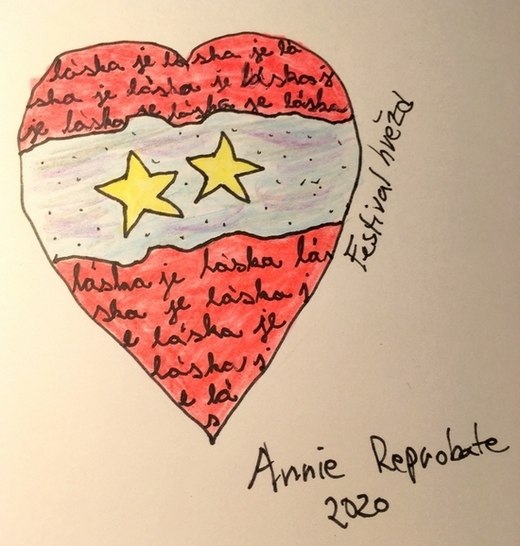 láska je láska je lá
ska je láska je láska s
je láska je láska je láska
láska je láska lás
ska je láska j
e láska je
láska j
e lá
s
Festival hvězd
Annie Reprobate
2020